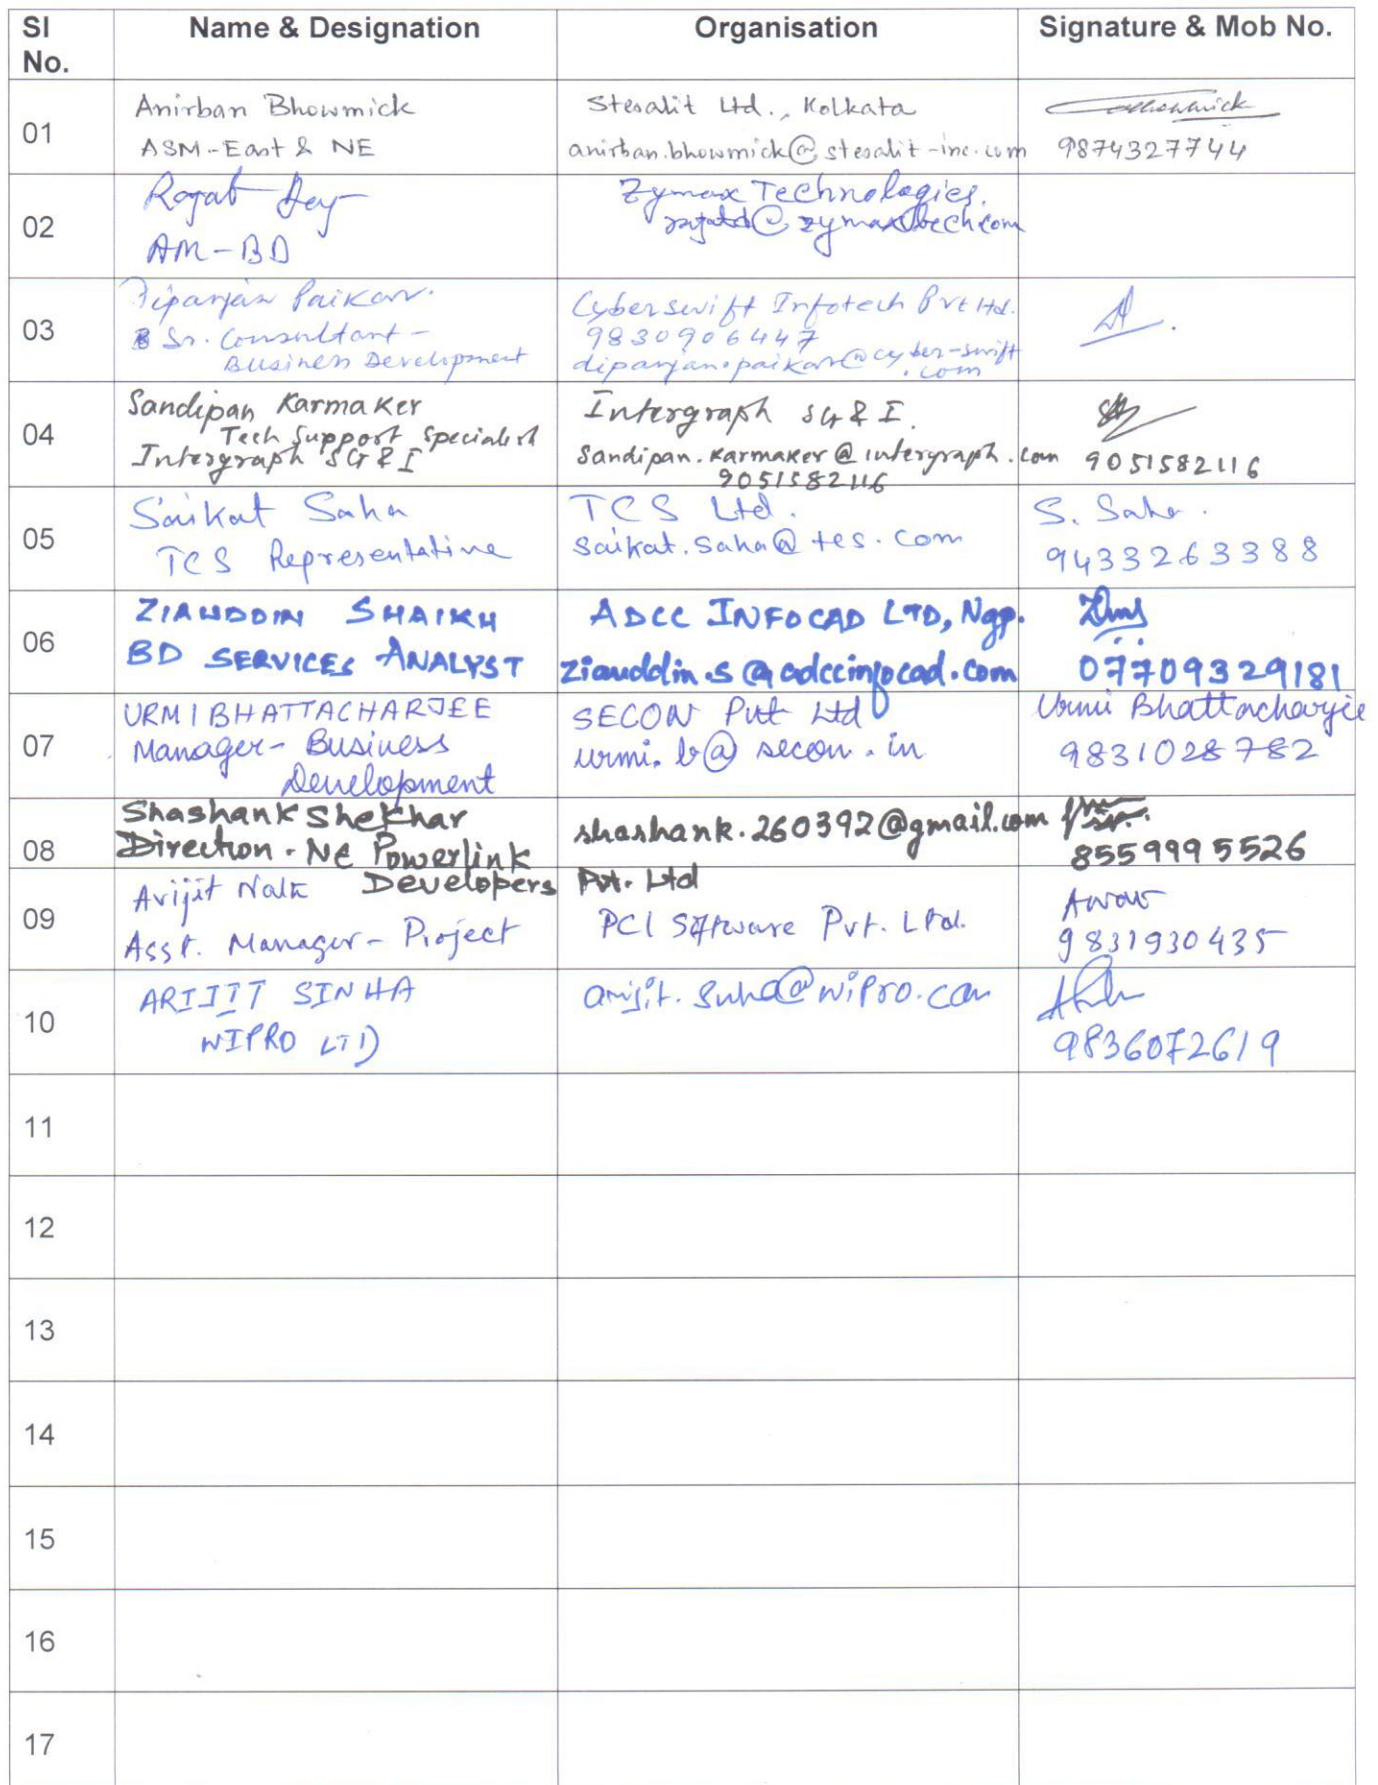 Sl No.
Name & Designation
Organisation
Signature & Mob No.
01
Anirban Bhowmick
ASM-East & NE
Stesalit Ltd., Kolkata
anirban.bhowmick@stesalit-inc.com
9874327744
02
Rajat Dey
AM-BD
Zymax Technologies.
rajatd@zymaxtech.com
03
Dipanjan Paikar.
Sr. Consultant -
Business Development
Cyberswift Infotech Pvt Ltd.
9830906447
dipanjan.paikar@cyber-swift
.com
04
Sandipan Karmaker
Tech Support Specialist
Intergraph SG&I
Intergraph SG&I.
Sandipan.Karmaker@intergraph.com
9051582116
9051582116
05
Saikat Saha
TCS Representative
TCS Ltd.
Saikat.Saha@tcs.com
S. Saha.
9433263388
06
ZIAUDDIN SHAIKH
BD SERVICES ANALYST
ADCC INFOCAD LTD, Ngp.
ziauddin.s@adccinfocad.com
07709329181
07
URMI BHATTACHARJEE
Manager- Business
Development
SECON Pvt Ltd
urmi.b@secon.in
Urmi Bhattacharjee
9831028782
08
Shashank Shekhar
Direction - NE Powerlink
Developers Pvt. Ltd
shashank.260392@gmail.com
8559995526
09
Avijit Naik
Asst. Manager- Project
PCI Software Pvt. Ltd.
9831930435
10
ARIJIT SINHA
WIPRO LTD
arijit.sinha@wipro.com
9836072619
11
12
13
14
15
16
17